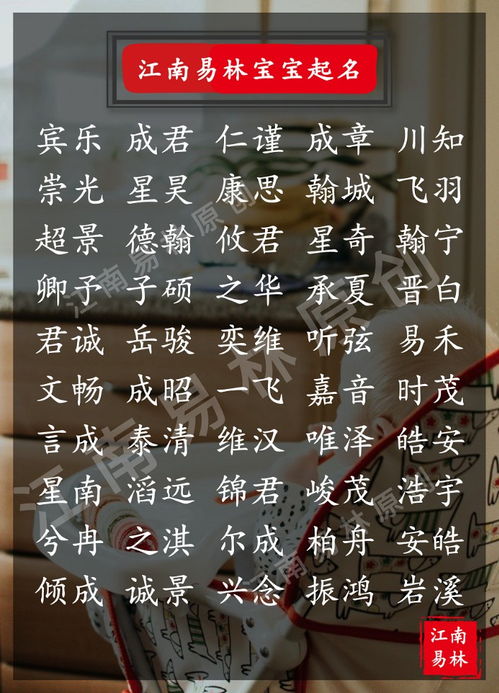 江南易林宝宝起名
宾乐 成君 仁谨 成章 川知
崇光 星昊 康思 翰城 飞羽
超景 德翰 攸君 星奇 翰宁
卿予 子硕 之华 承夏 晋白
君诚 岳骏 奕维 听弦 易禾
文畅 成昭 一飞 嘉音 时茂
言成 泰清 维汉 唯泽 皓安
星南 滔远 锦君 峻茂 浩宇
兮冉 之淇 尔成 柏舟 安皓
倾成 诚景 兴念 振鸿 岩溪
江南易林原创
江南易林原创
南易林原创
江南
易林